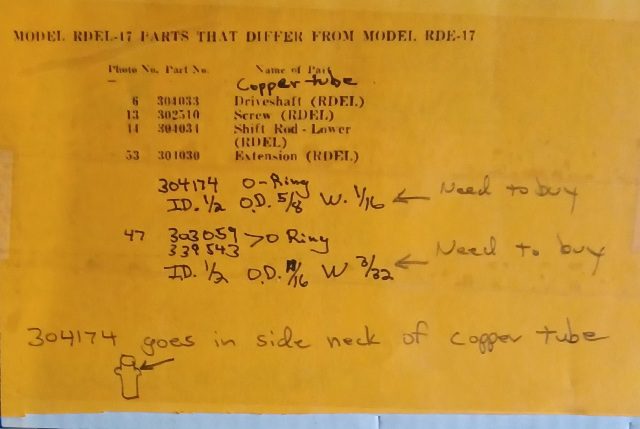 MODEL RDEL-17 PARTS THAT DIFFER FROM MODEL RDE-17
Photo No. Part No. Name of Part
Copper tube
6 304033 Driveshaft (RDEL)
13 302510 Screw (RDEL)
14 304034 Shift Rod - Lower
(RDEL)
53 304030 Extension (RDEL)
304174 O-Ring
I.D. 1/2 O.D. 5/8 W. 1/16 ← Need to buy
47 303059 > O Ring
339543
I.D. 1/2 O.D. 11/16 W 3/32 ← Need to buy
304174 goes in side neck of copper tube